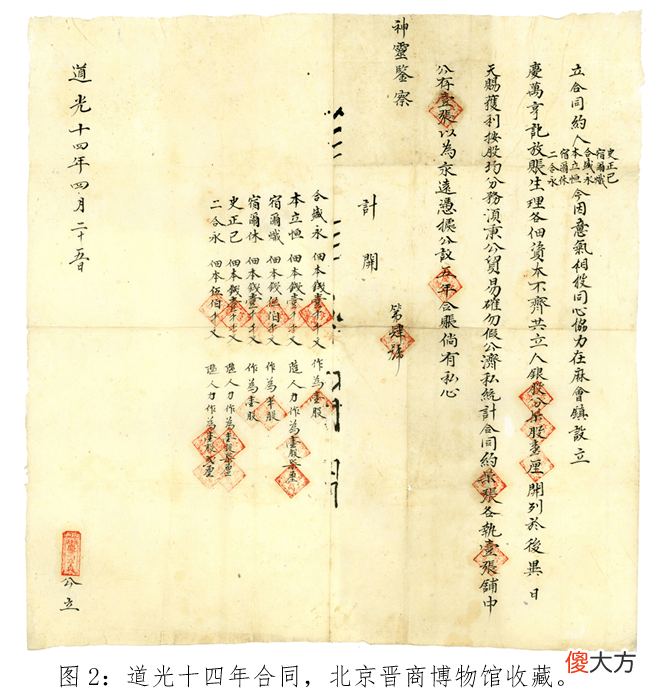 立合同約人
史正己
宿爾熾
合盛永
本立恒
宿爾休
二合永
今因意氣相投同心協力在麻會鎮設立
慶萬亨記放賬生理各佃資本不齊共立人銀股分柒股壹厘開列於後異日
天賜獲利按股均分務須秉公貿易確勿假公濟私統計合同約柒張各執壹張舖中
公存壹張以為永遠憑據公設五年合賬倘有私心
神靈鑒察
第肆號
計開
合盛永 佃本錢壹千千文 作為壹股
本立恒 佃本錢壹千千文 隨人力作為壹股柒厘
宿爾熾 佃本錢伍佰千文 作為半股
宿爾休 佃本錢壹千千文 作為壹股
史正己 佃本錢壹千千文 隨人力作為壹股柒厘
二合永 佃本錢伍佰千文 隨人力作為壹股貳厘
道光十四年四月二十五日
公立
图2：道光十四年合同，北京晋商博物馆收藏。
傻大方